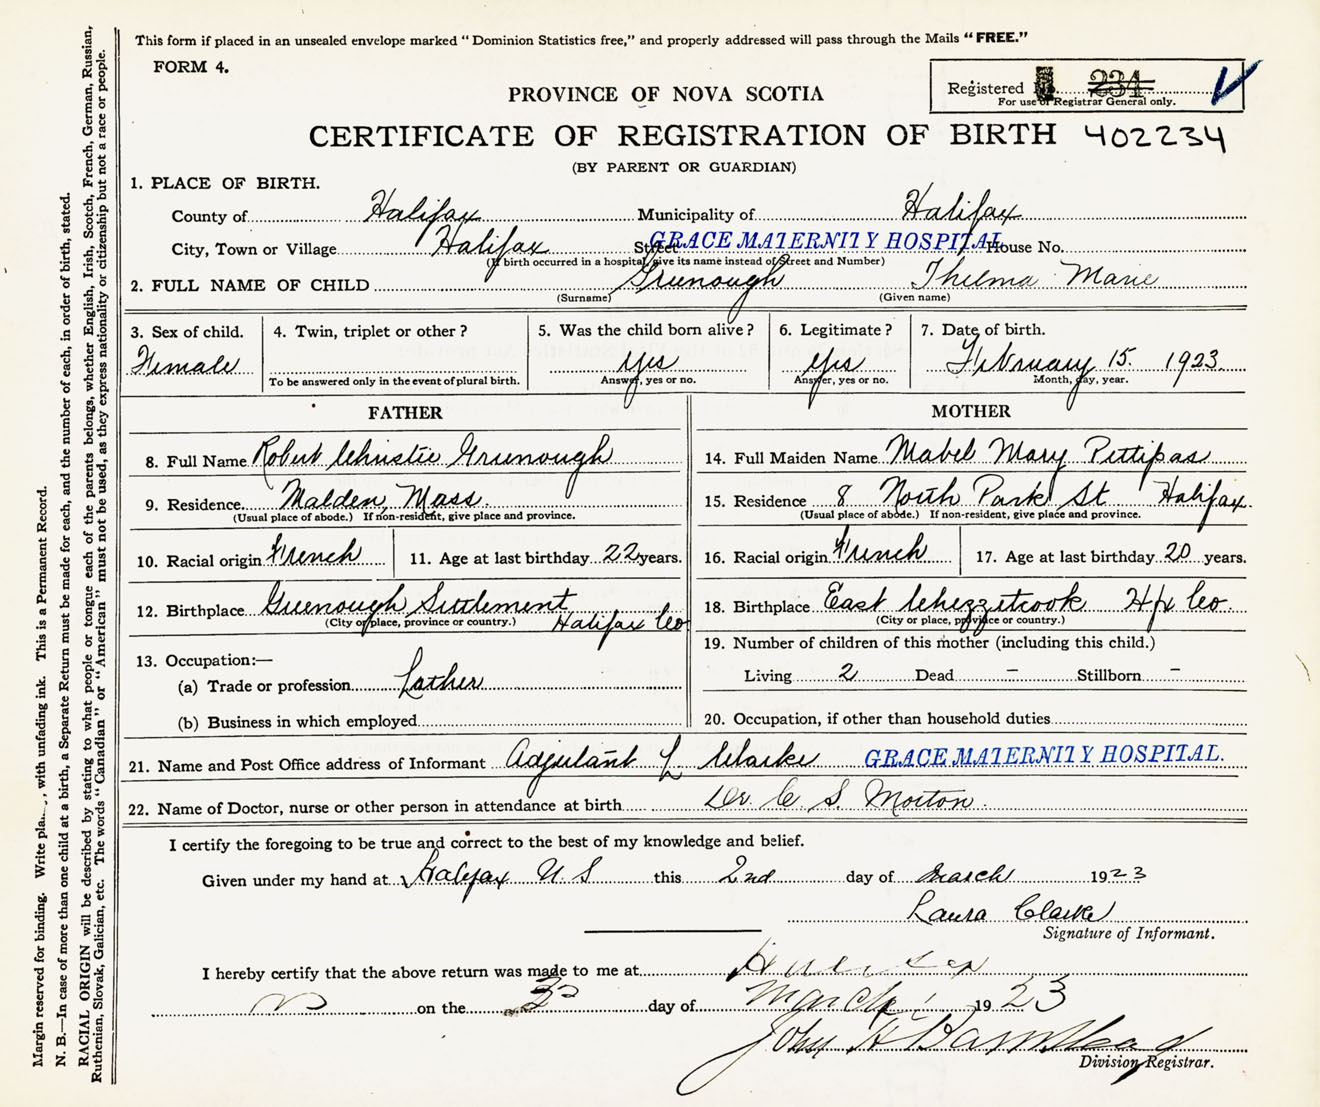 This form if placed in an unsealed envelope marked "Dominion Statistics free," and properly addressed will pass through the Mails "FREE."
FORM 4.
Registered No. 234
For use of Registrar General only.
PROVINCE OF NOVA SCOTIA
CERTIFICATE OF REGISTRATION OF BIRTH 402234
(BY PARENT OR GUARDIAN)
1. PLACE OF BIRTH.
County of Halifax Municipality of Halifax
City, Town or Village Halifax Street GRACE MATERNITY HOSPITAL House No.
(If birth occurred in a hospital, give its name instead of Street and Number)
2. FULL NAME OF CHILD Greenough Thelma Marie
(Surname) (Given name)
3. Sex of child. 4. Twin, triplet or other? 5. Was the child born alive? 6. Legitimate? 7. Date of birth.
Female yes yes February 15. 1923.
To be answered only in the event of plural birth. Answer, yes or no. Answer, yes or no. Month, day, year.
FATHER MOTHER
8. Full Name Robert Christie Greenough 14. Full Maiden Name Mabel Mary Pettipas
9. Residence Malden, Mass. 15. Residence 8 North Park St Halifax.
(Usual place of abode.) If non-resident, give place and province. (Usual place of abode.) If non-resident, give place and province.
10. Racial origin French 11. Age at last birthday 22 years. 16. Racial origin French 17. Age at last birthday 20 years.
12. Birthplace Greenough Settlement Halifax Co 18. Birthplace East Chezzetcook Hfx Co.
(City or place, province or country.) (City or place, province or country.)
13. Occupation:—
(a) Trade or profession Lather
(b) Business in which employed
19. Number of children of this mother (including this child.)
Living 2 Dead – Stillborn –
20. Occupation, if other than household duties
21. Name and Post Office address of Informant Adjutant L Clarke GRACE MATERNITY HOSPITAL.
22. Name of Doctor, nurse or other person in attendance at birth Dr C S. Morton.
I certify the foregoing to be true and correct to the best of my knowledge and belief.
Given under my hand at Halifax N.S this 2nd day of March 1923
Laura Clarke
Signature of Informant.
I hereby certify that the above return was made to me at Halifax
on the day of March 1923
John H
Division Registrar.
Margin reserved for binding. Write , with unfading ink. This is a Permanent Record.
N. B.—In case of more than one child at a birth, a Separate Return must be made for each, and the number of each, in order of birth, stated.
RACIAL ORIGIN will be described by stating to what people or tongue each of the parents belongs, whether English, Irish, Scotch, French, German, Russian,
Ruthenian, Slovak, Galician, etc. The words "Canadian" or "American" must not be used, as they express nationality or citizenship but not a race or people.